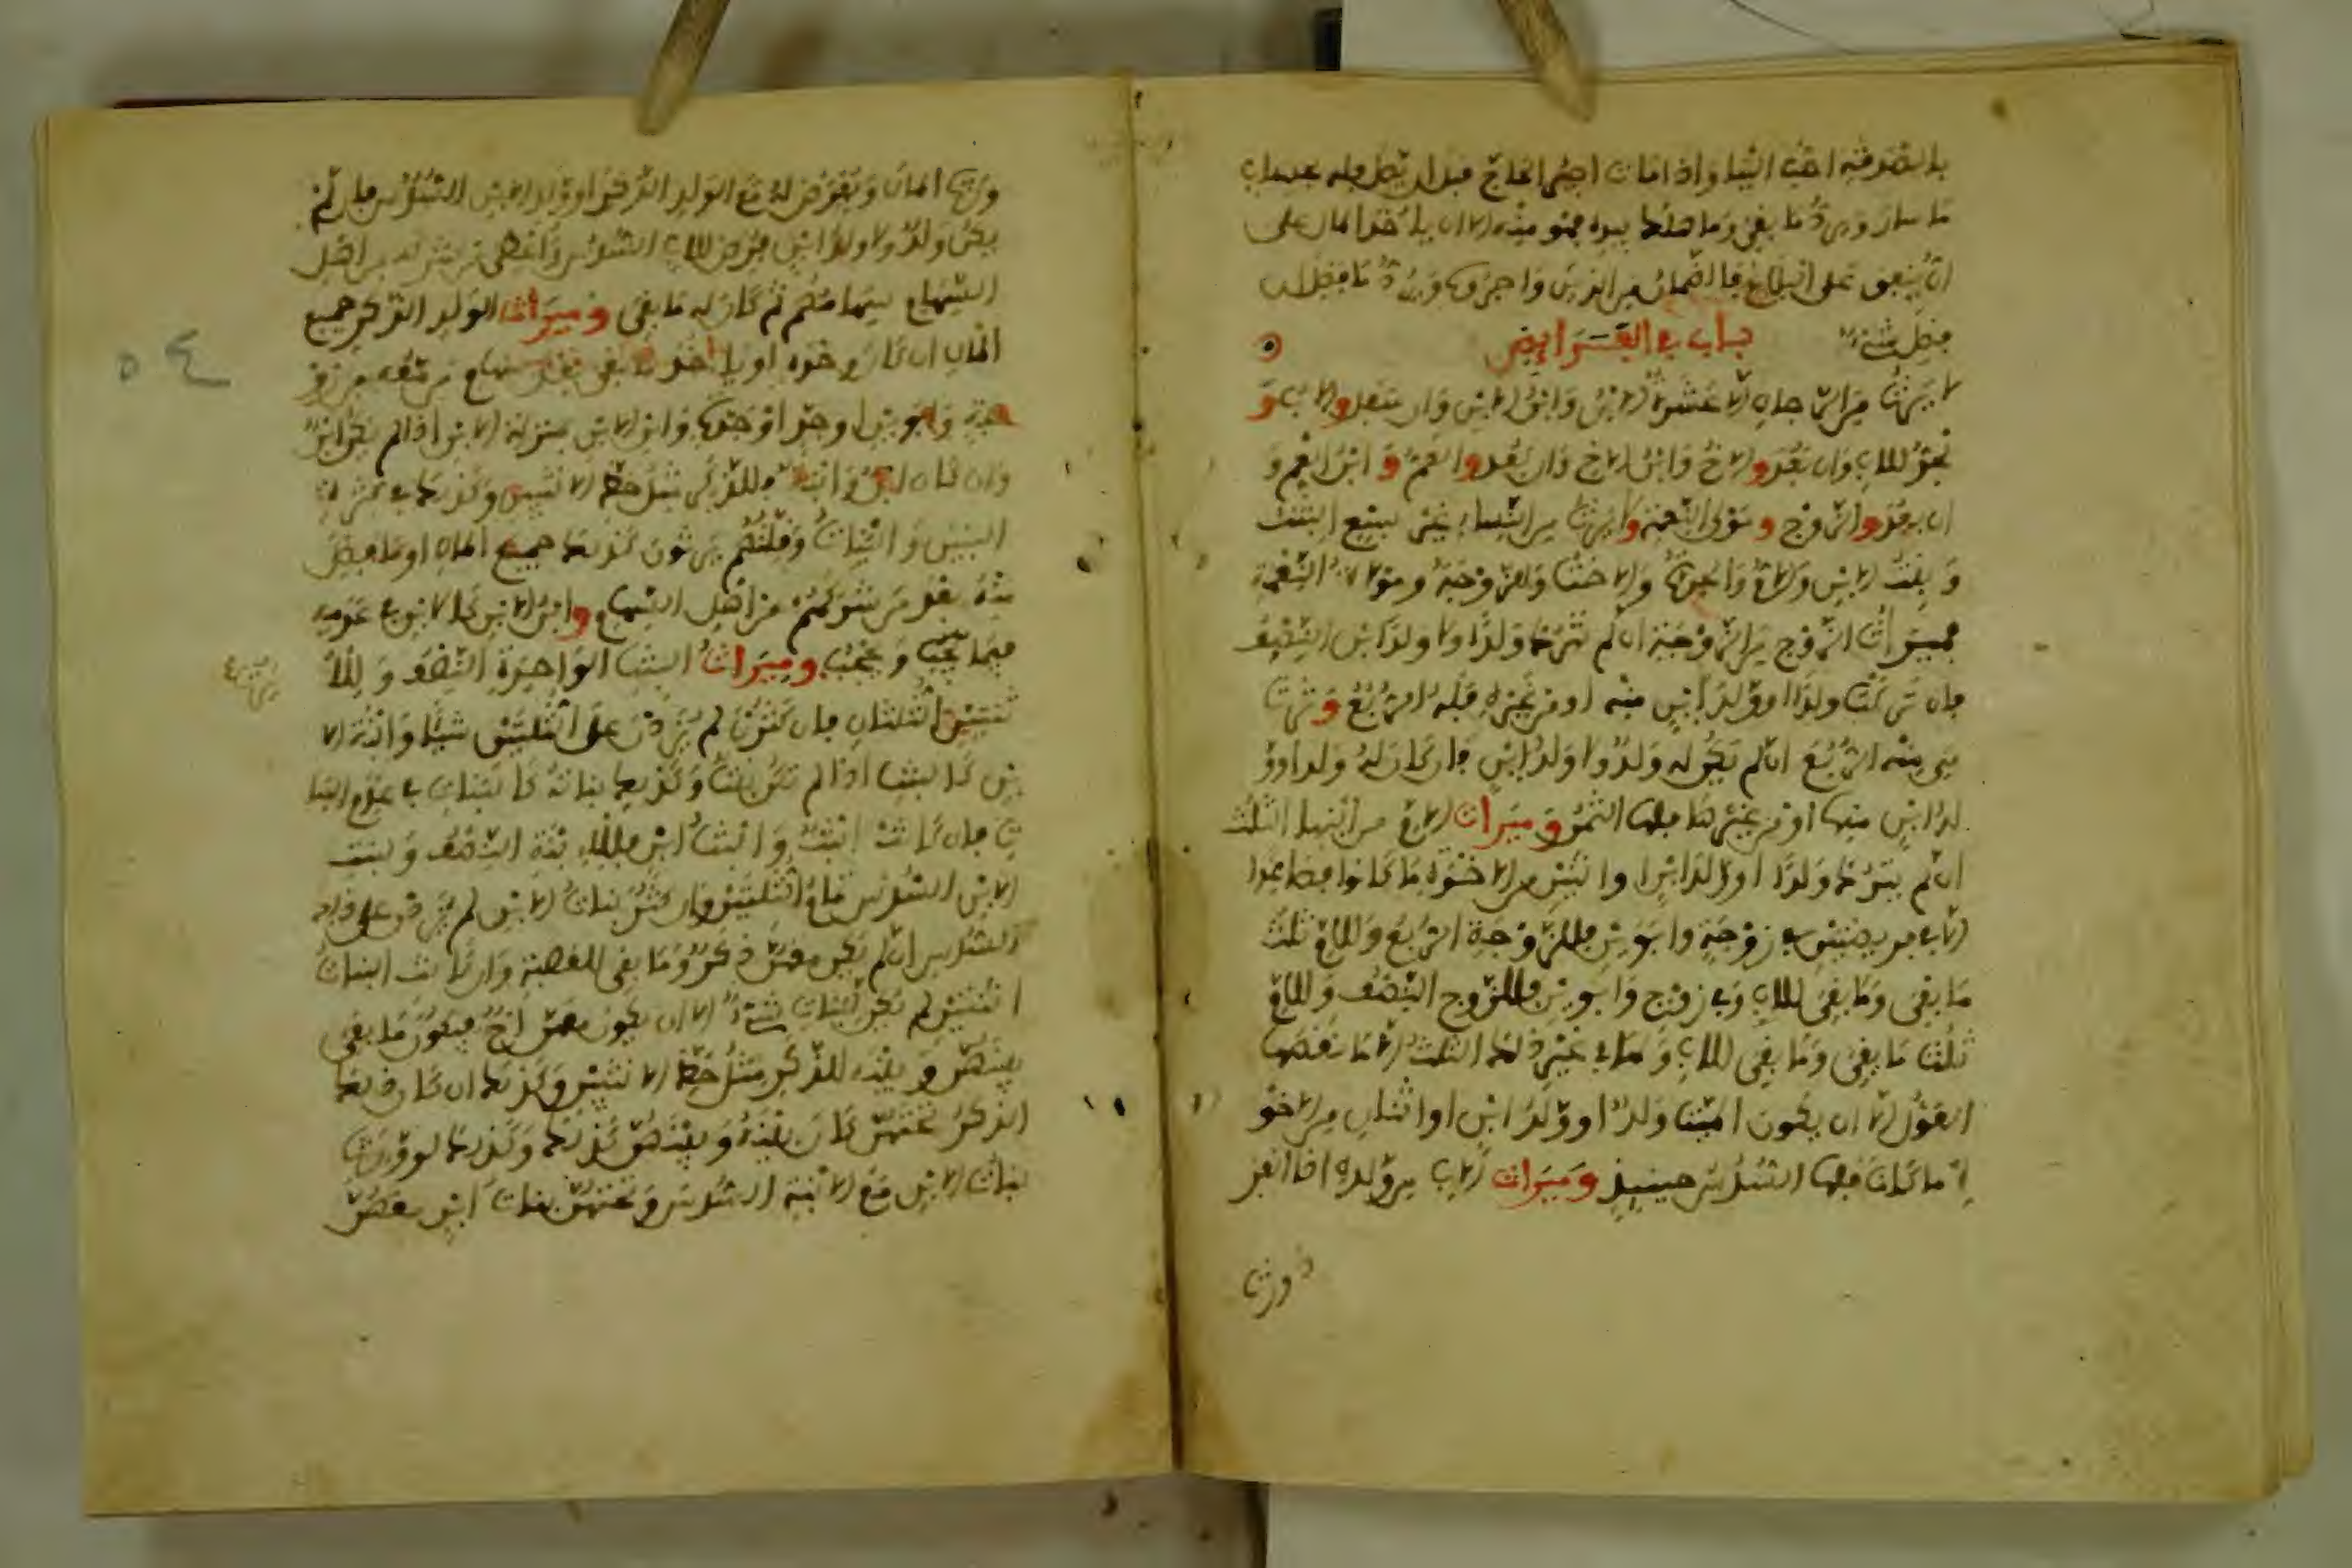 بالصدقة احب الينا واذا مات اجير الحاج قبل ان يصل فله بحساب
ما سار ويرد ما بقي وما هلك بيده فهو منه الا ان ياخذ المال على
ان ينفق على البلاغ فالضمان من الذين واجروه ويرد ما فضل ان
فضل شيء باب في الفرايض
لا يرث من الرجال الا عشرة الابن وابن الابن وان سفل والاب و
الجد للاب وان بعد والاخ وابن الاخ وان بعد والعم وابن العم و
ان بعد والزوج ومولى النعمة ولا يرث من النساء غير سبع البنت
وبنت الابن والام والجدة والاخت والزوجة ومولاة النعمة
فميراث الزوج من الزوجة ان لم تترك ولدا ولا ولد ابن النصف
فان تركت ولدا او ولد ابن منه او من غيره فله الربع وترث
هي منه الربع ان لم يكن له ولد ولا ولد ابن فان كان له ولد او و
لد ابن منها او من غيرها فلها الثمن وميراث الام من ابنها الثلث
ان لم يترك ولدا او ولد ابن او اثنين من الاخوة ما كانوا فصاعدا
الا في فريضتين في زوجة وابوين فللزوجة الربع وللام ثلث
ما بقي وما بقي للاب وفي زوج وابوين فللزوج النصف وللام
ثلث ما بقي وما بقي للاب ولها في غير ذلك الثلث الا ما نقصها
العول الا ان يكون للميت ولد او ولد ابن او اثنان من الاخو
ة ما كانا فلها السدس حينيذ وميراث الاب من ولده اذا انفر
د ورث
ورث المال ويفرض له مع الولد الذكر او ولد الابن السدس فان لم
يكن ولد ولا ولد ابن فرض للاب السدس واعطي من شركه من اهل
السهام سهامهم ثم كان له ما بقي وميراث الولد الذكر جميع
المال ان كان وحده او ياخذ ما بقي بعد سهام من معه من زو
جة وابوين او جد او جدة وابن الابن بمنزلة الابن اذا لم يكن ابن
وان كان ابن وابنة فللذكر مثل حظ الانثيين وكذلك في كثرة
البنين والبنات وقلتهم يرثون كذلك جميع المال او ما فضل
منه بعد من شركهم من اهل السهام وابن الابن كالابن في عدمه
فيما يحجب ويحجب وميراث البنت الواحدة النصف وللا
ثنتين الثلثان فان كثرن لم يزدن على الثلثين شيئا وابنة الا
بن كالبنت اذا لم تكن بنت وكذلك بناته كالبنات في عدم البنا
ت فان كانت ابنة وابنة ابن فللابنة النصف ولبنت
الابن السدس تمام الثلثين وان كثرن بنات الابن لم يزدن على ذلك
السدس ان لم يكن معهن ذكر وما بقي للعصبة وان كانت البنات
اثنتين لم يكن لبنات شيء الا ان يكون معهن اخ فيكون ما بقي
بينهن وبينه للذكر مثل حظ الانثيين وكذلك ان كان ذلك
الذكر تحتهن كان بينه وبينهن كذلك وكذلك لو ورث
بنات الابن مع الابنة السدس وتحتهن بنات ابن معهن